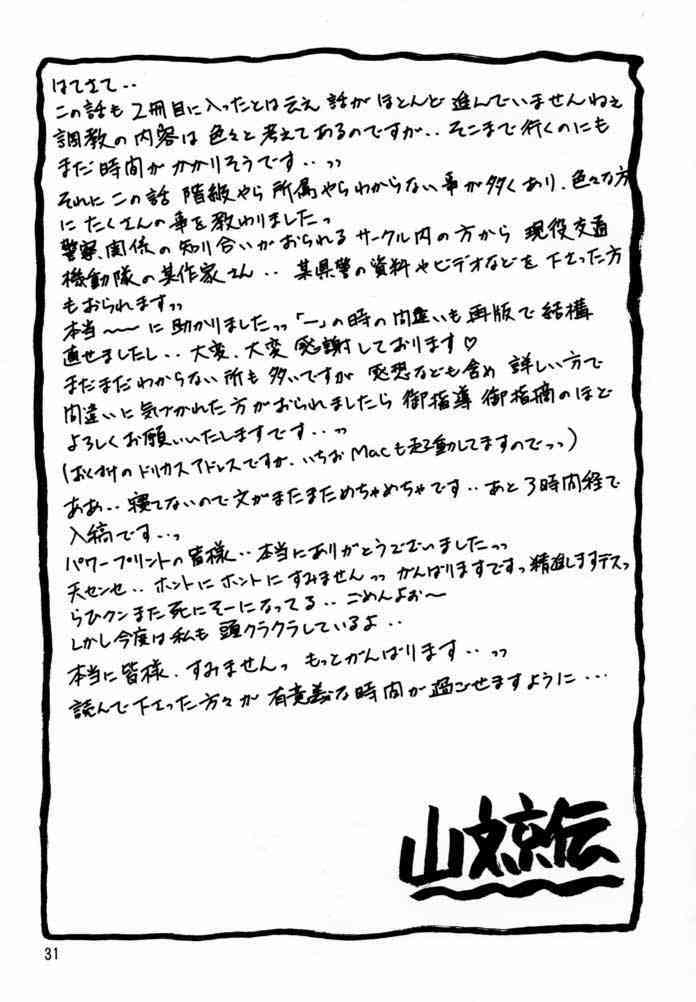 はてさて‥
この話も2冊目に入ったとは云え 話が ほとんど 進んでいませんねぇ
調教の内容は 色々と考えてあるのですが‥そこまで行くのにも
まだ時間が かかりそうです‥ッッ
それに この話 階級やら 所属やらわからない事が多くあり、色々な方
に たくさんの事を教わりましたっ
警察関係の知り合いがおられる サークル内の方から 現役交通
機動隊の某作家さん‥ 某県警の資料やビデオなどを 下さった方
もおられますッッ
本当〜〜に 助かりましたッッ「一」の時の間違いも 再版で 結構
直せましたし‥大変、大変 感謝しております♡
まだまだわからない所も 多いですが 感想なども含め 詳しい方で
間違いに気づかれた方がおられましたら 御指導 御指摘のほど
よろしくお願いいたしますです‥ッッ
(おくづけのドリカスアドレスですが、いちおMacも起動してますのでっっ)
ああ‥寝てないので文がまたまためちゃめちゃです‥あと3時間経で
入稿です‥っ
パワープリントの皆様‥本当にありがとうございましたッッ
天センセ‥ホントにホントにすみませんッッ がんばりますですっ精進しますデスっ
らひクンまた死にそーになってる‥ごめんよぉ〜
しかし今度は私も 頭クラクラしているよ‥
本当に皆様、すみませんっ もっとがんばります‥ッッ
読んで下さった方々が 有意義な時間が過ごせますように…
山文京伝
31